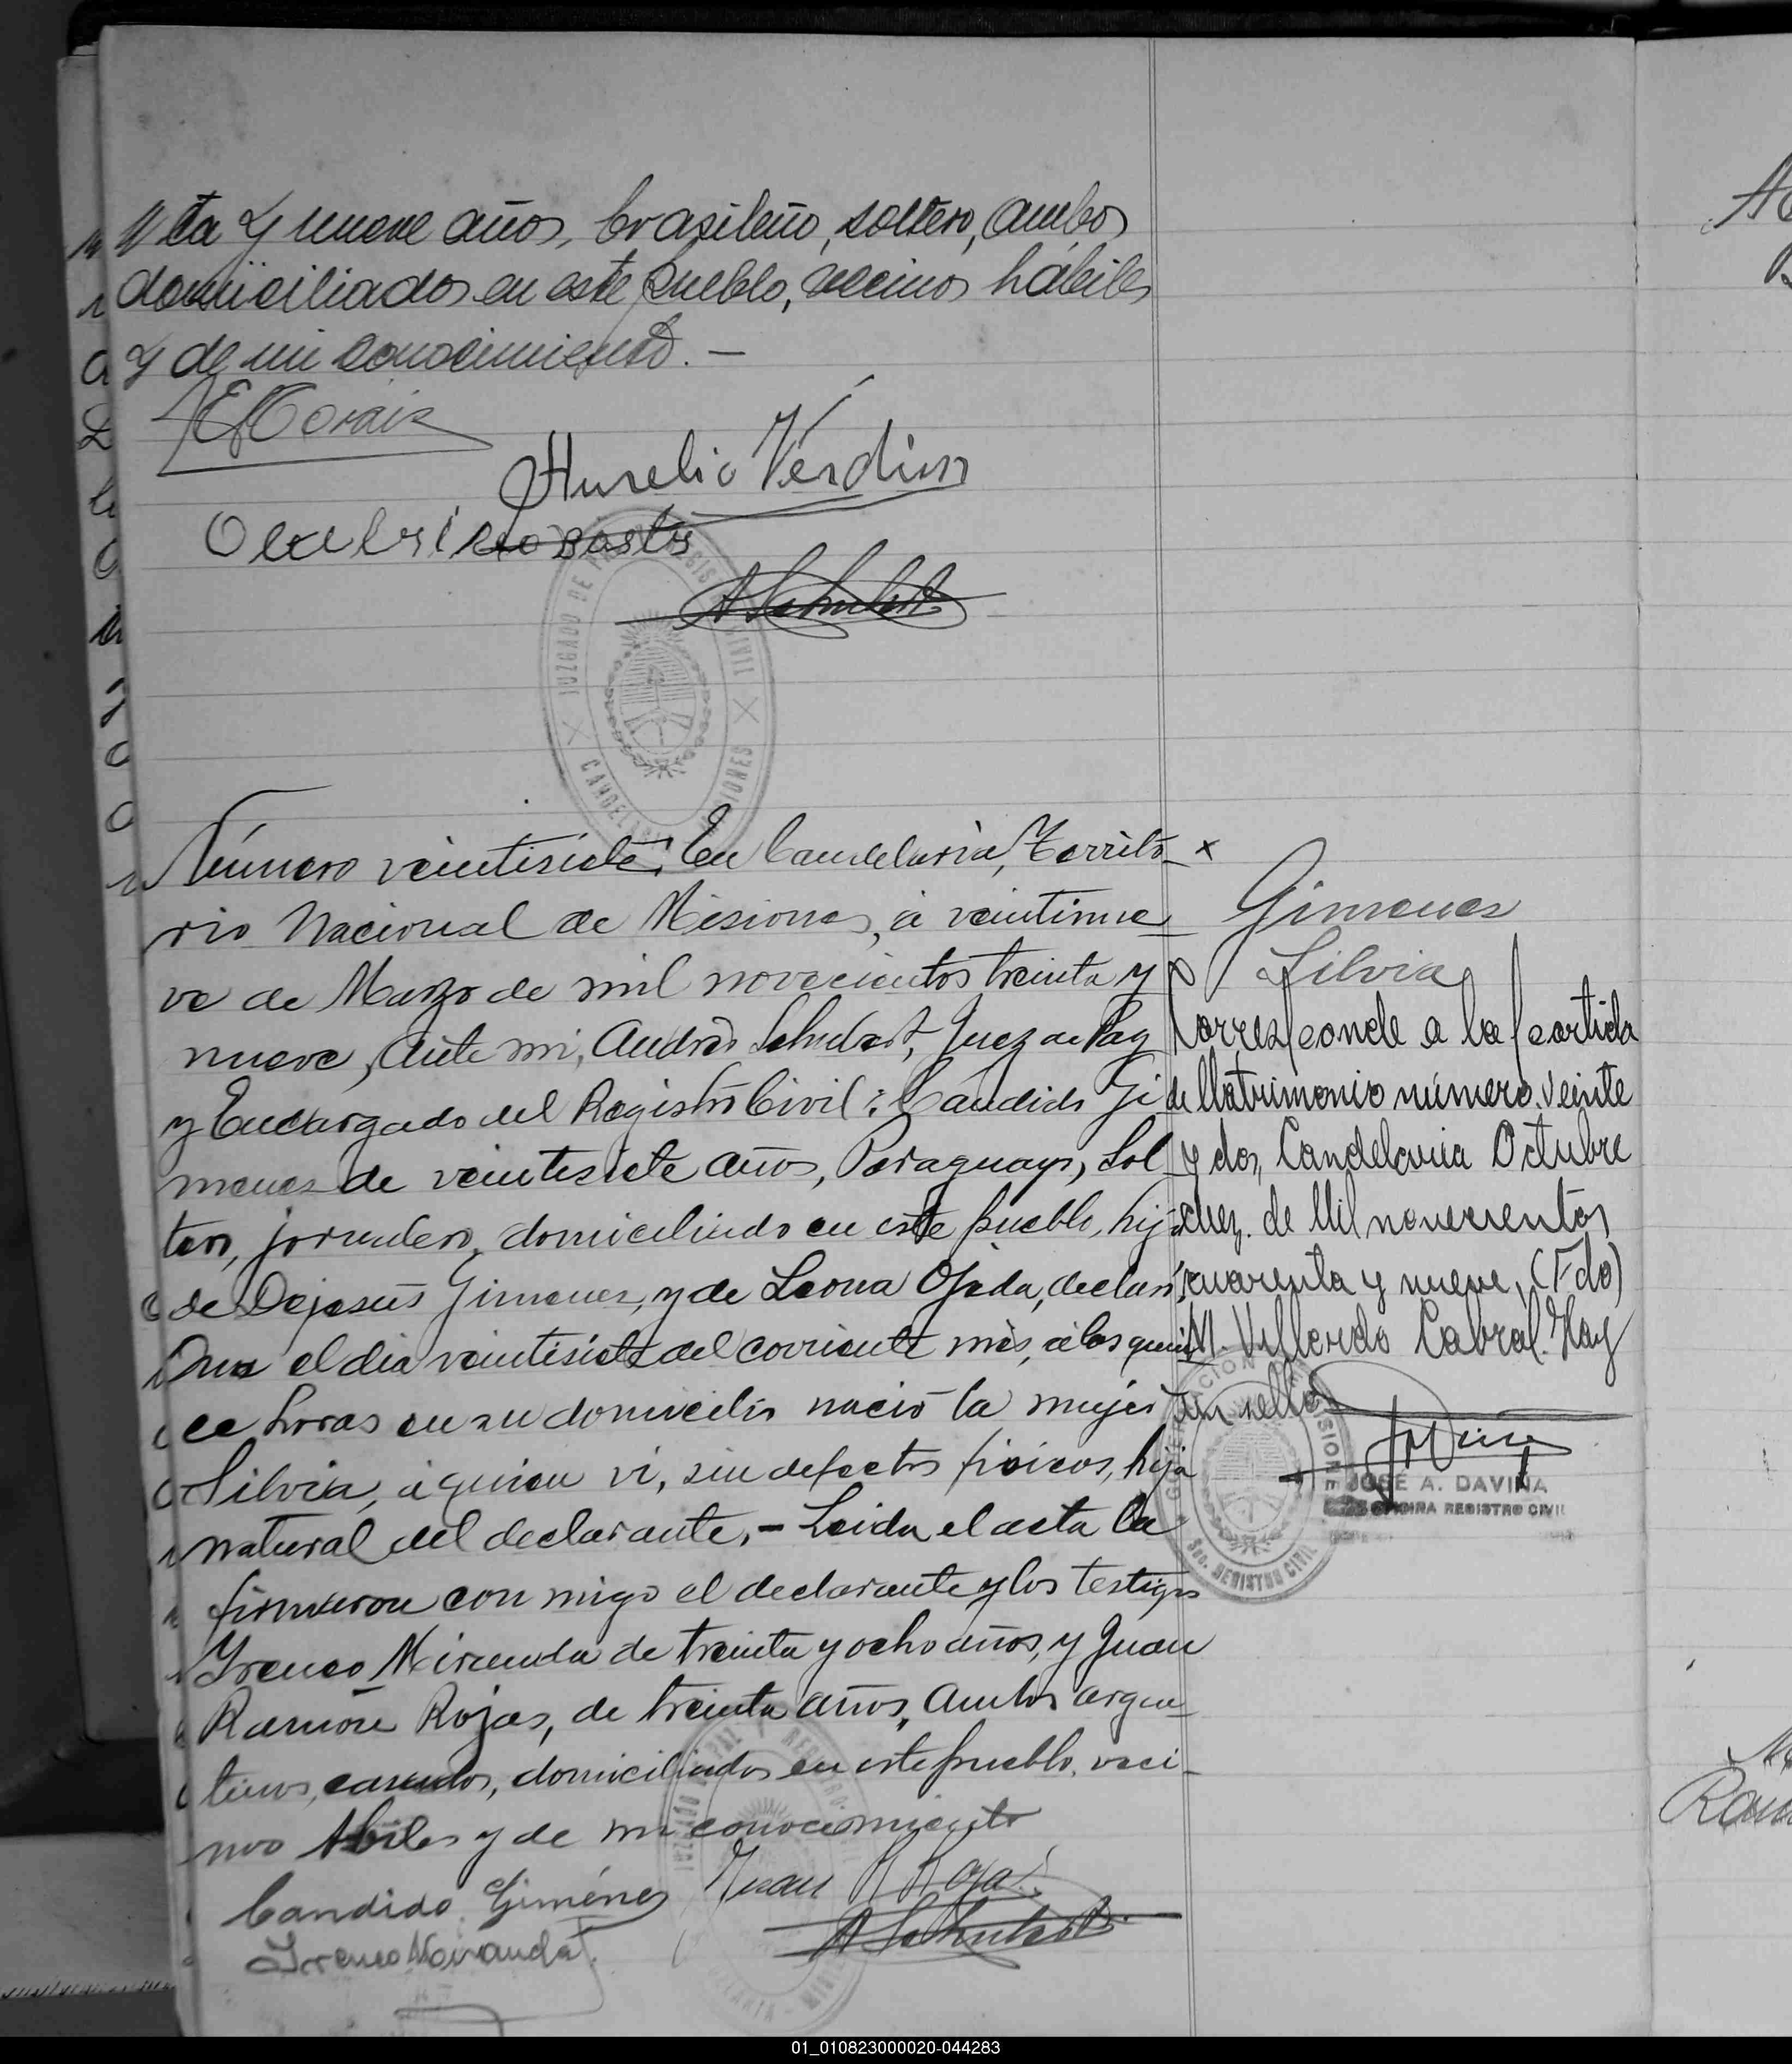 ta y nueve años, brasileño, soltero, ambos
domiciliados en este pueblo, vecinos hábiles
y de mi conocimiento. —
Aurelio Verdun
A Schubert
JUZGADO DE PAZ REGISTRO CIVIL
CANDELARIA MISIONES
Número veintisiete: En Candelaria, Territo-
rio Nacional de Misiones, á veintinue-
ve de Marzo de mil novecientos treinta y
nueve, ante mi, Andrés Schubert, Juez de Paz
y Encargado del Registro Civil: Cándido Gi-
menez de veintisiete años, Paraguayo, sol-
tero, jornalero, domiciliado en este pueblo, hijo
de Dejesús Gimenez, y de Leona Ojeda, declaró:
Que el día veintisiete del corriente més, á las quin-
ce horas en su domicilio nació la mujer
Silvia, á quien vi, sin defectos fisicos, hija
natural del declarante. - Leida el acta la
firmaron con migo el declarante y los testigos
Ireneo Miranda de treinta y ocho años, y Juan
Ramón Rojas, de treinta años, ambos argen-
tinos, casados, domiciliados en este pueblo, veci-
nos habiles y de mi conocimiento
Candido Giménez
Juan R Rojas
Ireneo Miranda
A Schubert
x
Gimenez
Silvia
Corresponde a la partida
de Matrimonio número veinte
y dos, Candelaria Octubre
diez. de Mil novecientos
cuarenta y nueve, (Fdo)
M. Villordo Cabral. Hay
un sello
JOSÉ A. DAVIÑA
REGISTRO CIVIL
SEC. REGISTRO CIVIL
01_010823000020-044283